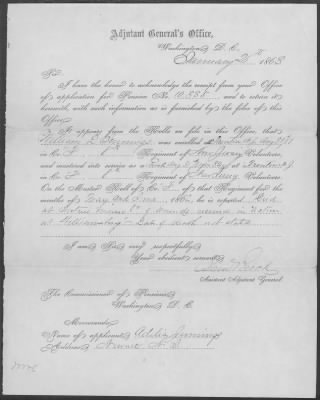 Adjutant General's Office,
Washington, D. C.
January 21st 1863
Sir:
I have the honor to acknowledge the receipt from your Office
of application for Pension No. 10.288 and to return it
herewith, with such information as is furnished by the files of this
Office.
It appears from the Rolls on file in this Office, that
William L. Jennings was enrolled at
in Co. Regiment of New Jersey Volunteers,
and mustered into service as a at Trenton N.J.
in Co. Regiment of New Jersey Volunteers.
On the Muster Roll of Co. of that Regiment for the
months of May and June 1862, he is reported Died
at Fortress Monroe Va of wounds received in action
at Williamsburg Date of death not stated
I am Sir, very respectfully,
Your obedient servant,
Assistant Adjutant General.
The Commissioner of Pensions
Washington, D. C.
Memoranda
Name of applicant Jennings
Address Newark N. J.